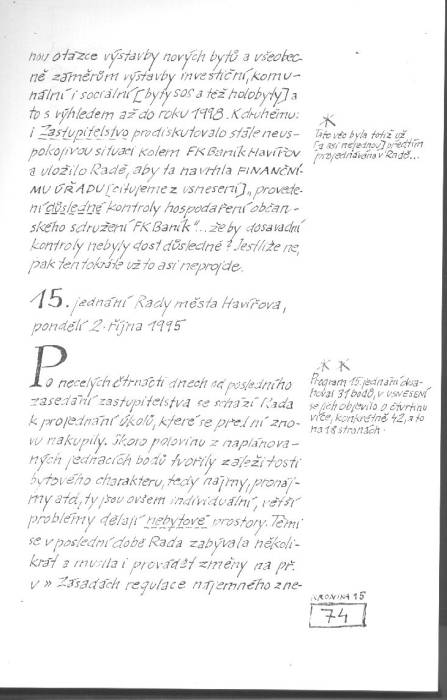 nou otázce výstavby nových bytů a všeobec-
ně záměrům výstavby investiční, komu-
nální i sociální [byty SOS a též holobyty] a
to s výhledem až do roku 1998. K druhému:
i Zastupitelstvo prodiskutovalo stále neus-
pokojivou situaci kolem FK Baník Havířov
a uložilo Radě, aby ta navrhla FINANČNÍ-
MU ÚŘADU [citujeme z usnesení] „provede-
ní důsledné kontroly hospodaření občan-
ského sdružení FK Baník“... že by dosavadní
kontroly nebyly dost důsledné? Jestliže ne,
pak tentokráte už to asi neprojde.
*
Tato věc byla totiž už
[a asi nejednou] předtím
projednávána v Radě...
15. jednání Rady města Havířova,
pondělí 2. října 1995
Po necelých čtrnácti dnech od posledního
zasedání zastupitelstva se schází Rada
k projednání úkolů, které se před ní zno-
vu nakupily. Skoro polovinu z naplánova-
ných jednacích bodů tvořily záležitosti
bytového charakteru, tedy nájmy, pronáj-
my atd., ty jsou ovšem individuální, větší
problémy dělají nebytové prostory. Těmi
se v poslední době Rada zabývala několi-
krát a musila i provádět změny na př.
v » Zásadách regulace nájemného z ne-
* *
Program 15. jednání obsa-
hoval 31 bodů, v USNESENÍ
se jich objevilo o čtvrtinu
více, konkrétně 42, a to
na 18 stranách.
KRONIKA 15
74